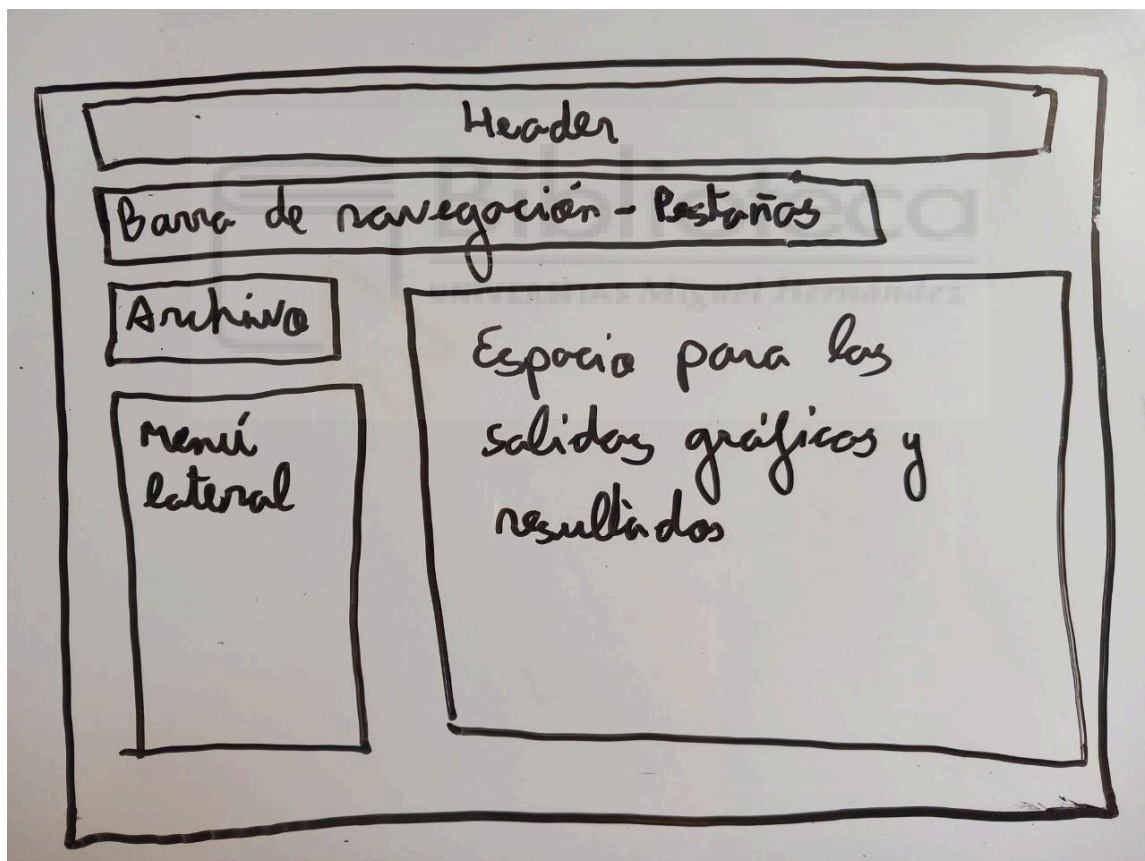 Header
Barra de navegación - Pestañas
Archivo
Menú
lateral
Espacio para las
salidas gráficas y
resultados
Biblioteca
UNIVERSITAS Miguel Hernández